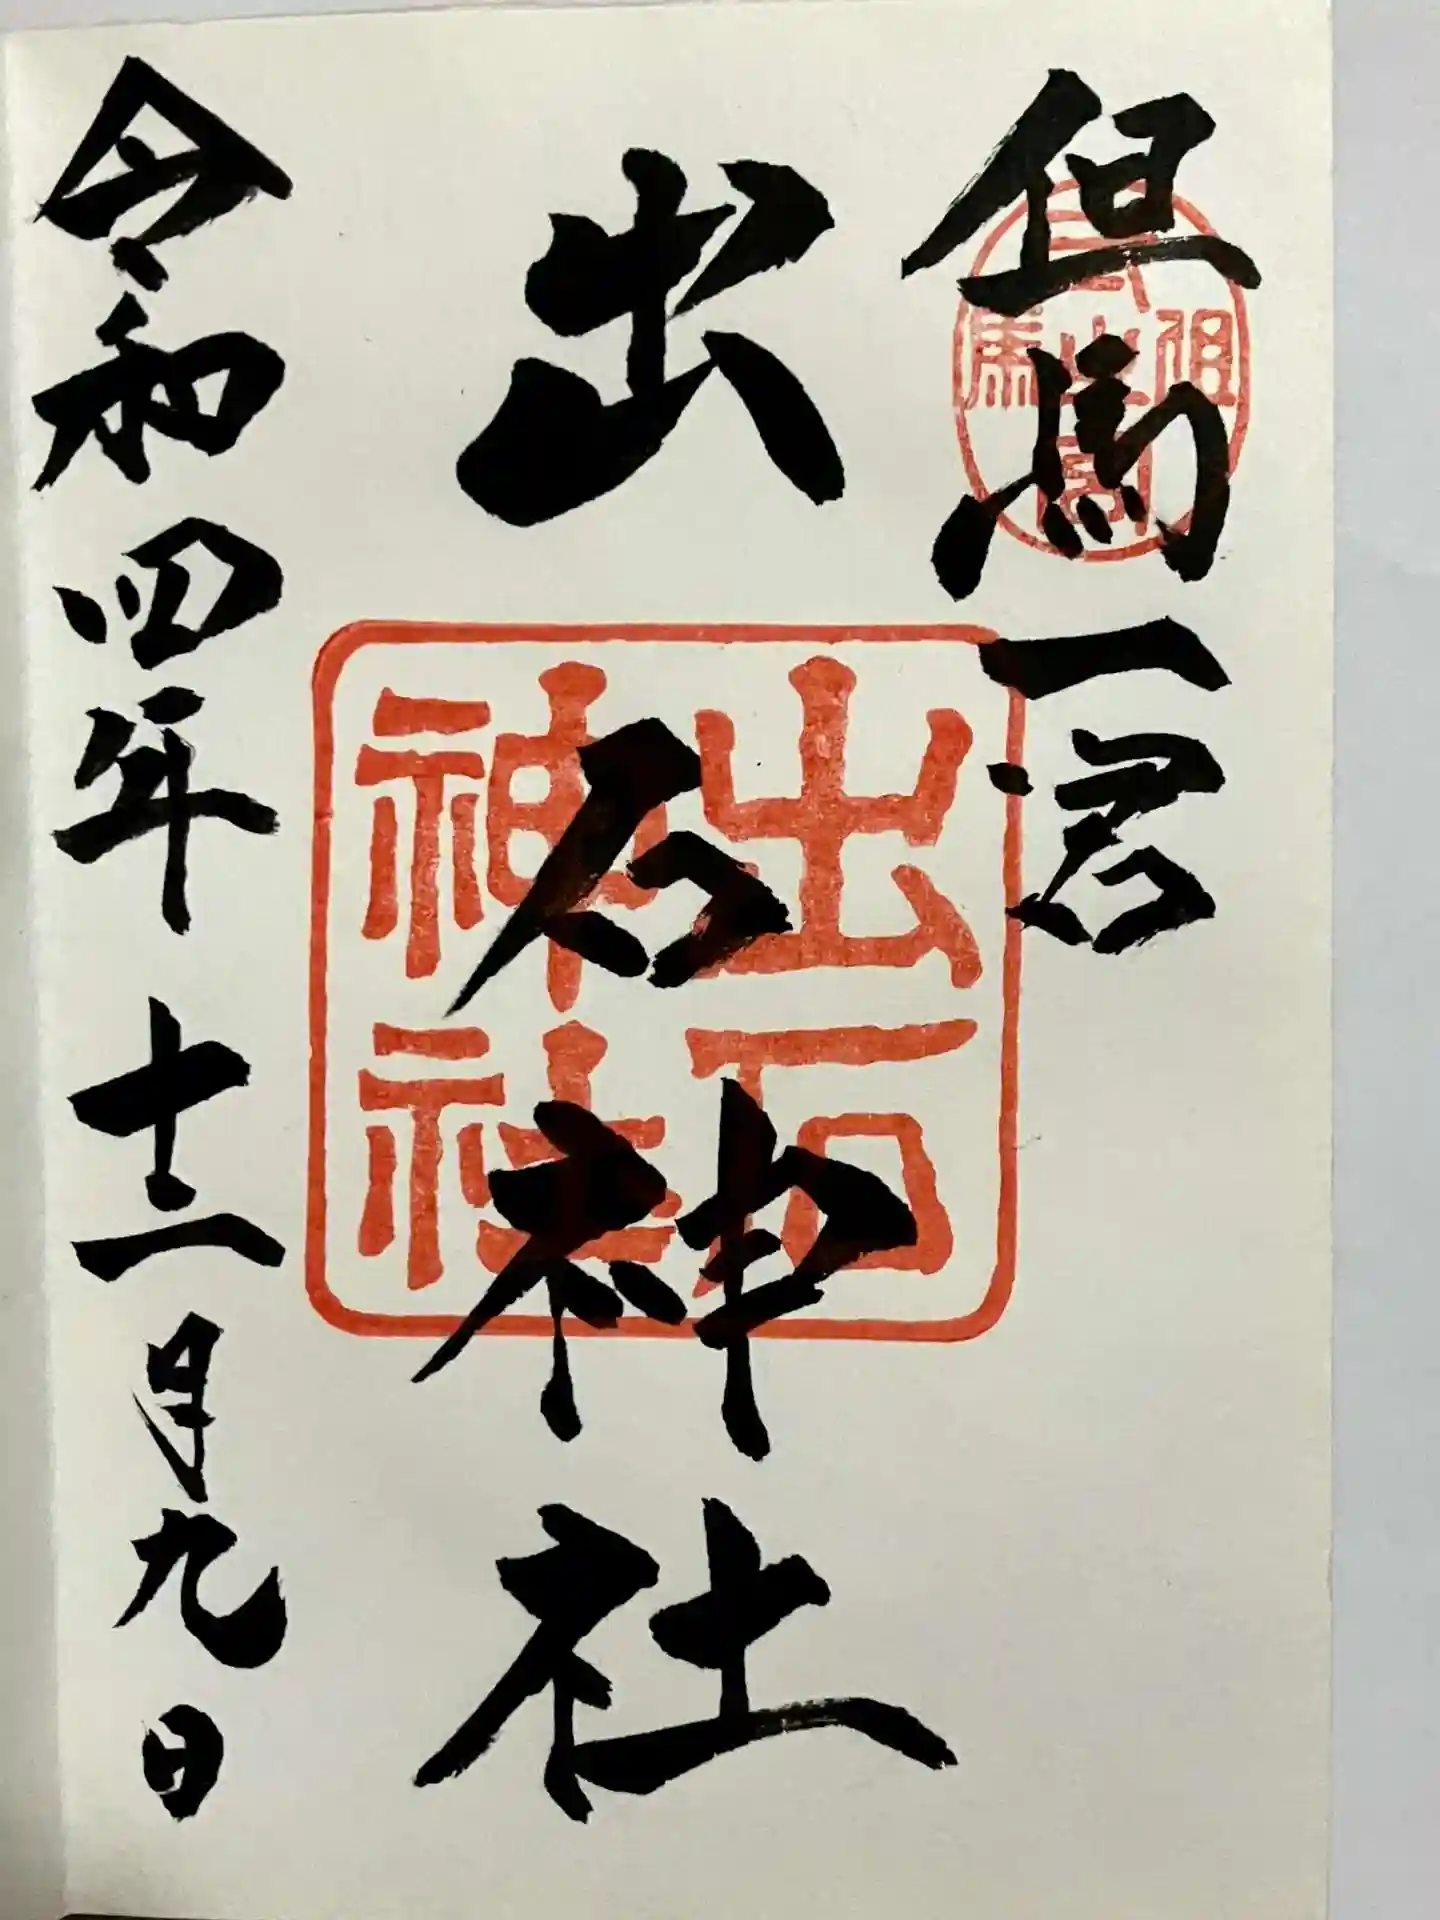 但馬一宮
出石神社
令和四年十二月九日
出石
神社